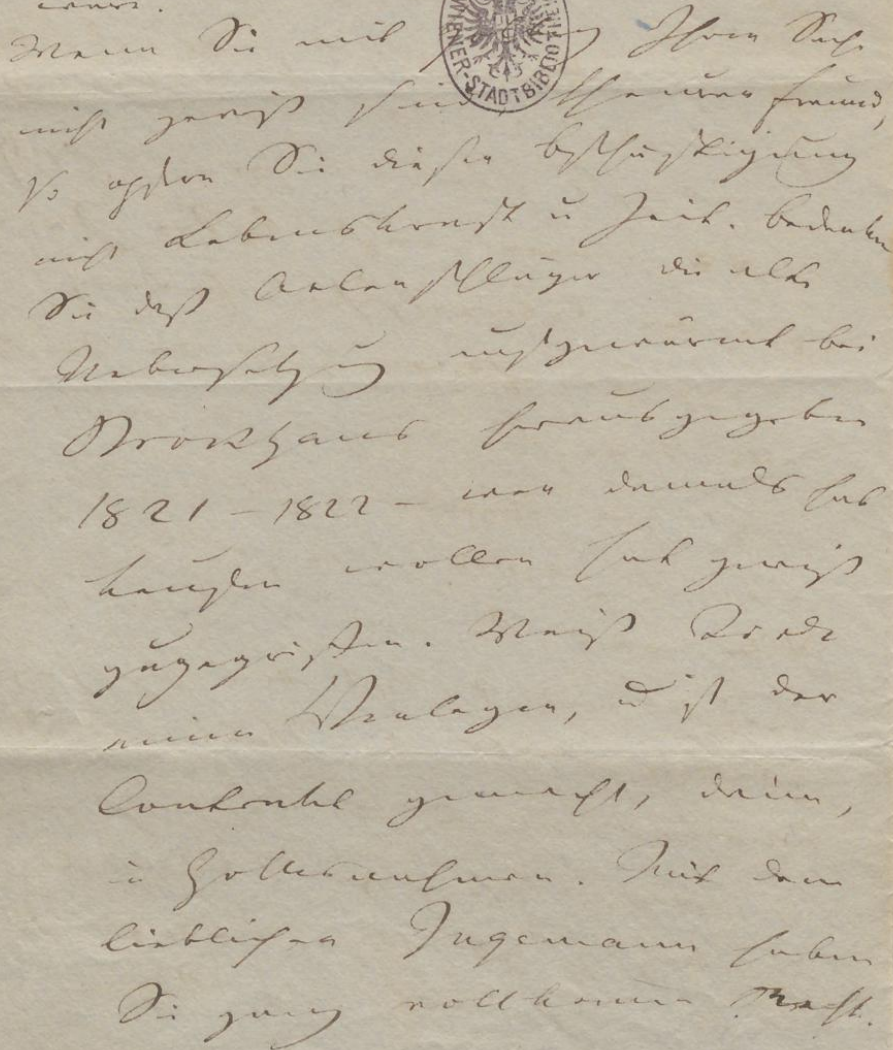 wert.
Wenn Sie mit Ihrer Sache
nicht gewiß sind, theurer Freund,
so opfern Sie dieser Beschäftigung
nicht Lebenskraft u Zeit. Bedenken
Sie daß Oelenschläger die alte
Uebersetzung aufgewärmt bei
Brockhaus herausgegeben
1821 – 1822 – wer damals hat
kaufen wollen hat gewiß
zugegriffen. Weiß
einen Verleger, u ist der
Contrakt gemacht, dann,
in Gottesnahmen. Mit dem
lieblichen Ingemann haben
Sie ganz vollkommen Recht.
WIENER-STADTBIBLIOTHEK